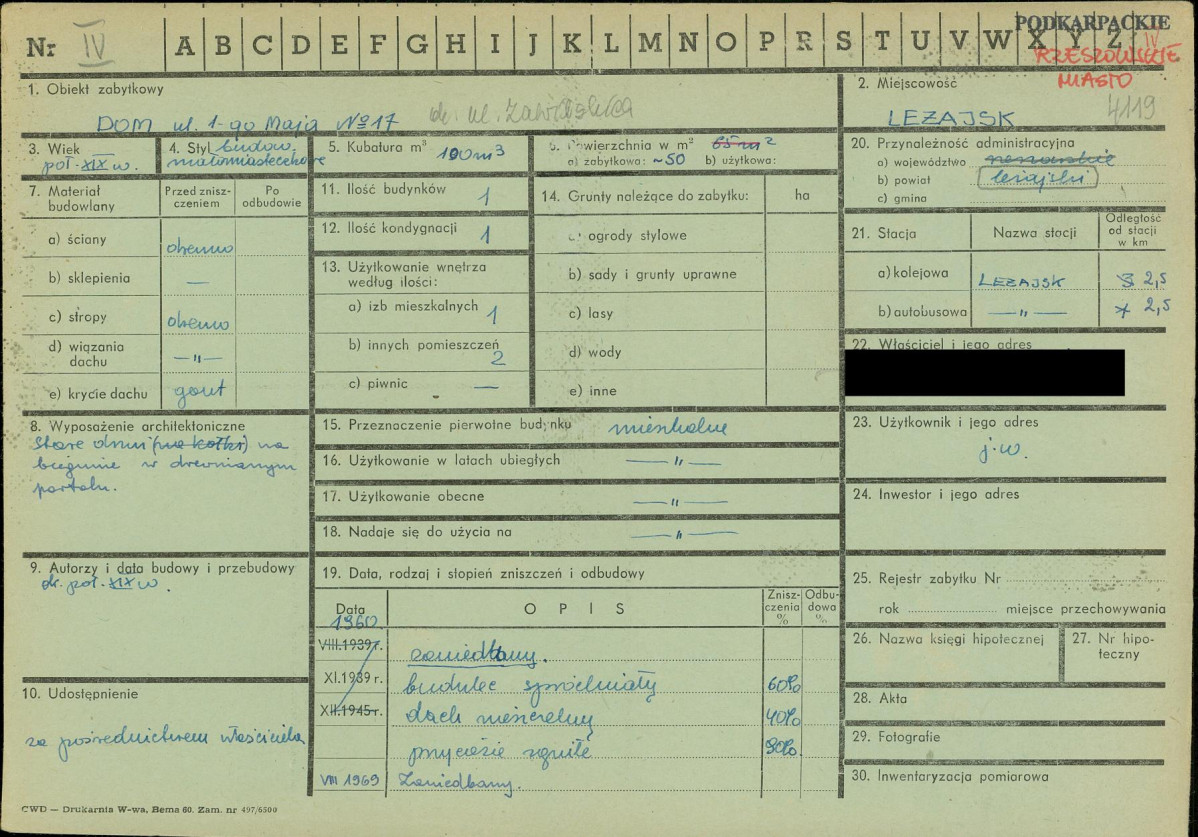 Nr IV A B C D E F G H I J K L M N O P R S T U V W X Y Z
PODKARPACKIE
IV
RZESZOWSKIE
MIASTO
1. Obiekt zabytkowy
DOM ul. 1-go Maja No 17
ob. ul.
2. Miejscowość
4119
LEŻAJSK
3. Wiek
poł. XIX w.
4. Styl budow.
małomiasteczkowe
5. Kubatura m³ 100 m³
6. Powierzchnia w m² 65 m²
a) zabytkowa: ~50 b) użytkowa:
7. Materiał budowlany
Przed zniszczeniem
Po odbudowie
a) ściany drewno
b) sklepienia —
c) stropy drewno
d) wiązania dachu —"—
e) krycie dachu gont
8. Wyposażenie architektoniczne
Stare drzwi (na kołki) na
biegunie w drewnianym
portalu.
9. Autorzy i data budowy i przebudowy
dr. poł. XIX w.
10. Udostępnienie
za pośrednictwem właściciela
11. Ilość budynków 1
12. Ilość kondygnacji 1
13. Użytkowanie wnętrza
według ilości:
a) izb mieszkalnych 1
b) innych pomieszczeń 2
c) piwnic —
14. Grunty należące do zabytku: ha
a) ogrody stylowe
b) sady i grunty uprawne
c) lasy
d) wody
e) inne
15. Przeznaczenie pierwotne budynku mieszkalne
16. Użytkowanie w latach ubiegłych —"—
17. Użytkowanie obecne —"—
18. Nadaje się do użycia na —"—
19. Data, rodzaj i stopień zniszczeń i odbudowy
Data OPIS Zniszczenia % Odbudowa %
1960.
VIII.1939 r. zaniedbany.
XI.1939 r. budulec spróchniały 60%
XII.1945 r. dach nieszczelny 40%
przyciesie zgniłe 90%
VIII 1969 Zaniedbany.
20. Przynależność administracyjna
a) województwo rzeszowskie
b) powiat leżajski
c) gmina
21. Stacja Nazwa stacji Odległość od stacji w km
a) kolejowa LEŻAJSK 3 2,5
b) autobusowa —"— 2,5
22. Właściciel i jego adres
23. Użytkownik i jego adres
j.w.
24. Inwestor i jego adres
25. Rejestr zabytku Nr
rok miejsce przechowywania
26. Nazwa księgi hipotecznej
27. Nr hipoteczny
28. Akta
29. Fotografie
30. Inwentaryzacja pomiarowa
CWD — Drukarnia W-wa, Bema 60. Zam. nr 497/6500